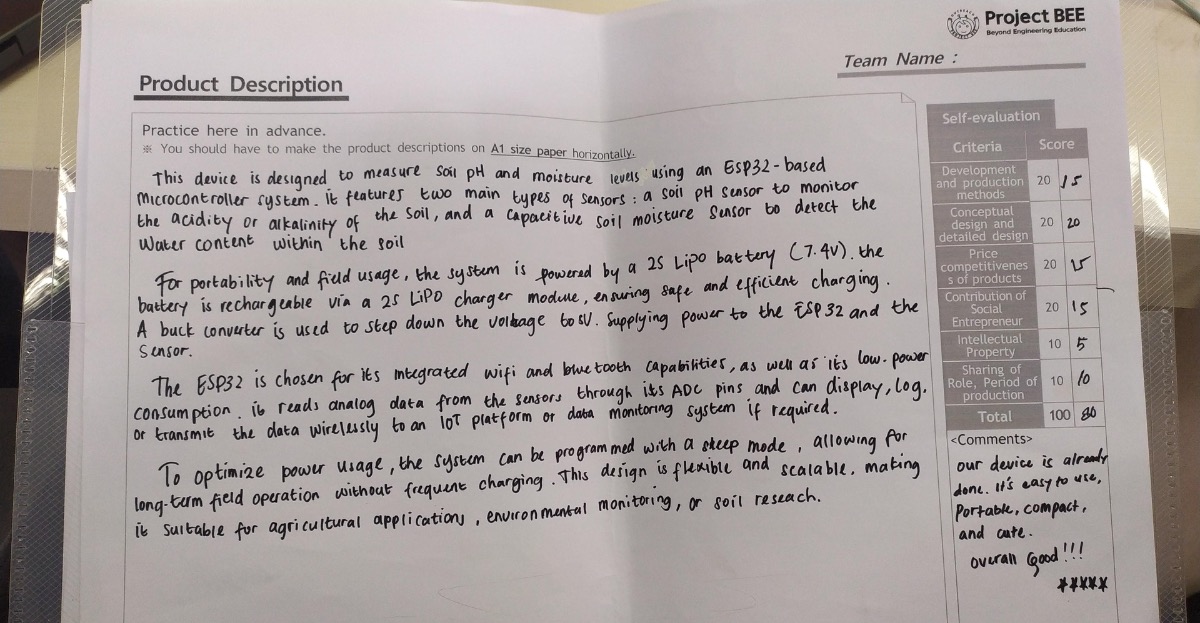 Project BEE
Beyond Engineering Education
Team Name :
Product Description
Practice here in advance.
※ You should have to make the product descriptions on A1 size paper horizontally.
This device is designed to measure soil pH and moisture levels using an ESP32-based
Microcontroller system. it features two main types of sensors : a soil pH sensor to monitor
the acidity or alkalinity of the soil, and a capacitive soil moisture sensor to detect the
Water content within the soil
For portability and field usage, the system is powered by a 2S LiPO battery (7.4V). the
battery is rechargeable via a 2S LiPO charger module, ensuring safe and efficient charging.
A buck converter is used to step down the voltage to 5V. Supplying power to the ESP32 and the
Sensor.
The ESP32 is chosen for its integrated wifi and bluetooth capabilities, as well as its low-power
consumption. it reads analog data from the sensors through its ADC pins and can display, log,
or transmit the data wirelessly to an IOT platform or data monitoring system if required.
To optimize power usage, the system can be programmed with a sleep mode, allowing for
long-term field operation without frequent charging. This design is flexible and scalable, making
it suitable for agricultural application, environmental monitoring, or soil reseach.
Self-evaluation
Criteria Score
Development and production methods 20 15
Conceptual design and detailed design 20 20
Price competitivenes s of products 20 15
Contribution of Social Entrepreneur 20 15
Intellectual Property 10 5
Sharing of Role, Period of production 10 10
Total 100 80
<Comments>
our device is already
done. It's easy to use,
Portable, compact,
and cute.
overall Good!!!
*****